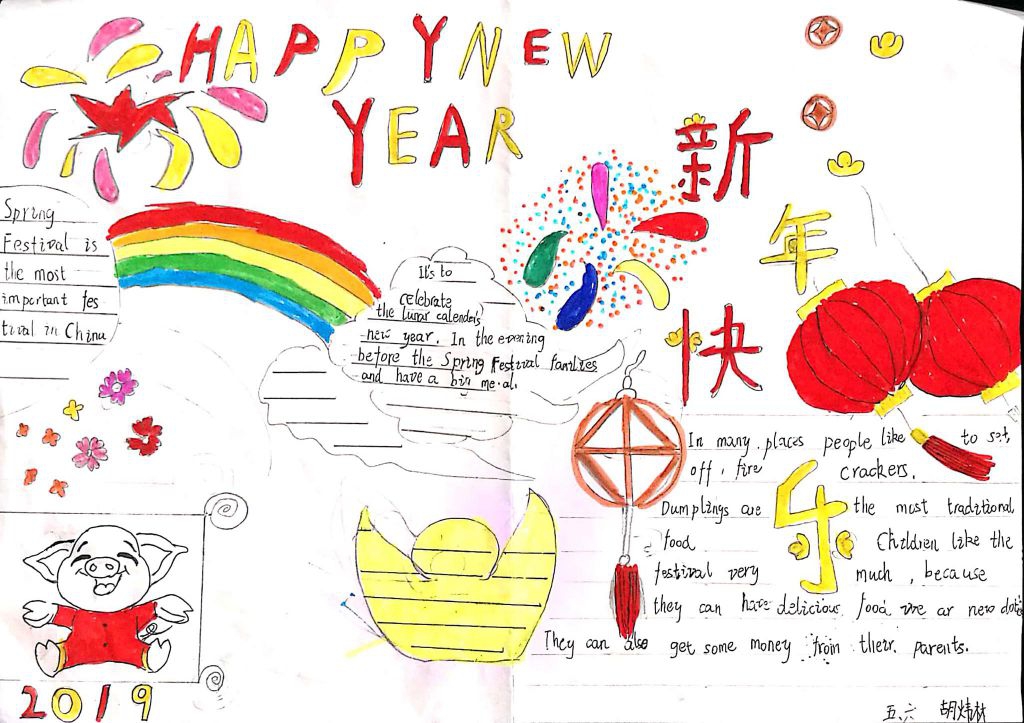 HAPPY NEW
YEAR
新
年
快
乐
Spring
Festival is
the most
important fes
tival in China
It's to
celebrate
the lunar calendar's
new year. In the evening
before the Spring Festival families
and have a big meal.
In many places people like to set
off, fire crackers.
Dumplings are the most traditional
food Children like the
festival very much, because
they can have delicious food we ar new
They can also get some money from their parents.
2019
五、六 胡炜林